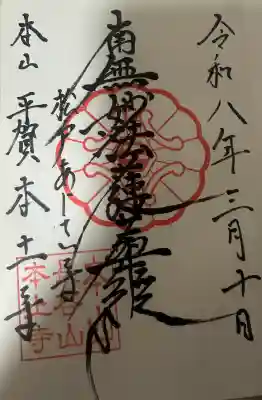 令和八年三月十日
南無妙法蓮華経
あじさい寺
本山 平賀 本土寺
本土寺